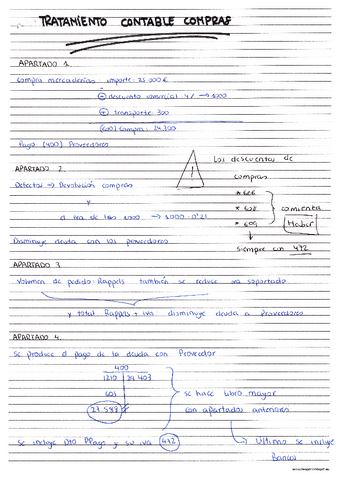 TRATAMIENTO CONTABLE COMPRAS
APARTADO 1.
Compra mercaderías importe: 25.000€
⊖ descuento comercial 4% → 1000
⊕ transporte 300
(600) Compra: 24.300
Pago (400) Proveedores
APARTADO 2.
Defectos → Devolución compras
y
el iva de los 1000 → 1000·0'21
Disminuye deuda con los proveedores
!
Los descuentos de
compras
* 606
* 608
* 609
comienza
Haber
siempre con 472
APARTADO 3.
Volumen de pedido: Rappels también se reduce iva soportado
y total Rappels + iva disminuye deuda a Proveedores
APARTADO 4.
Se produce el pago de la deuda con Proveedor
400
1210 29.403
605
27.588
se hace libro mayor
con apartados anteriores
Se incluye Dto PPago y su iva 472
→ Último se incluye
Bancos